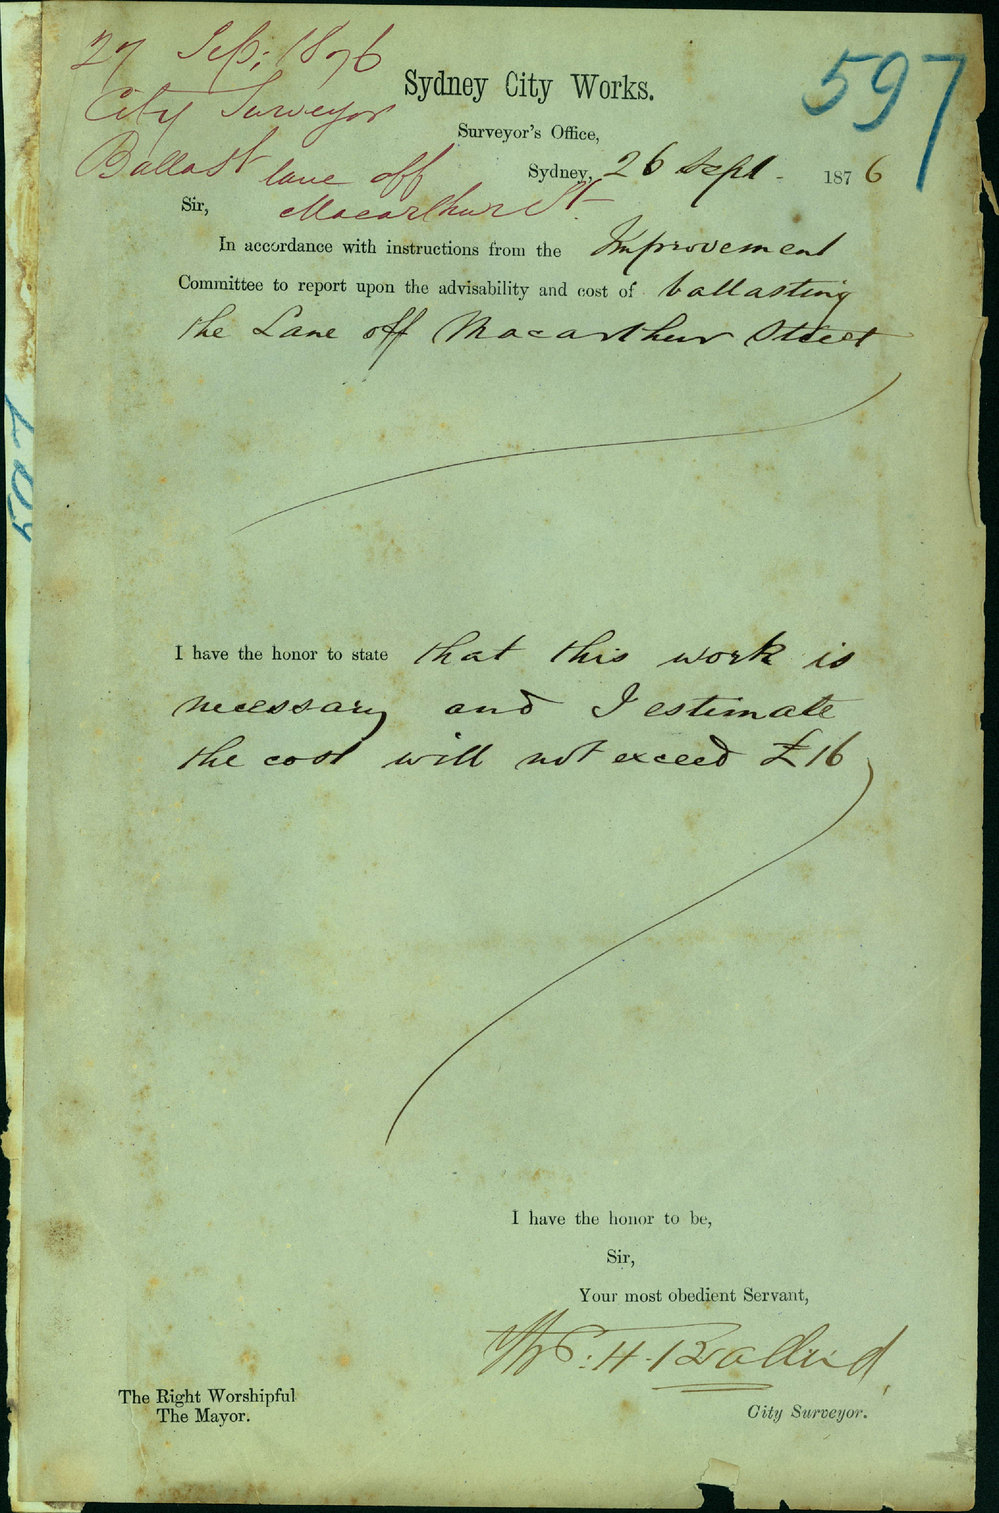 27 Sep: 1876
City Surveyor
Ballast lane off
Macarthur St
597
Sydney City Works.
Surveyor's Office,
Sydney, 26 Sept. 1876
Sir,
In accordance with instructions from the Improvement
Committee to report upon the advisability and cost of ballasting
the Lane off Macarthur Street
I have the honor to state that this work is
necessary and I estimate
the cost will not exceed £16
I have the honor to be,
Sir,
Your most obedient Servant,
City Surveyor.
The Right Worshipful
The Mayor.